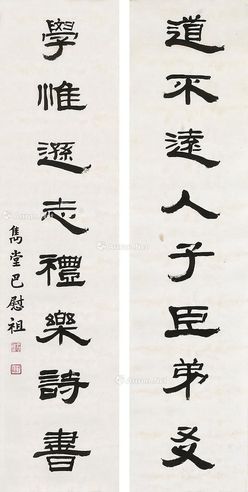 道不遠人子臣弟友
學惟遜志禮樂詩書
雋堂巴慰祖